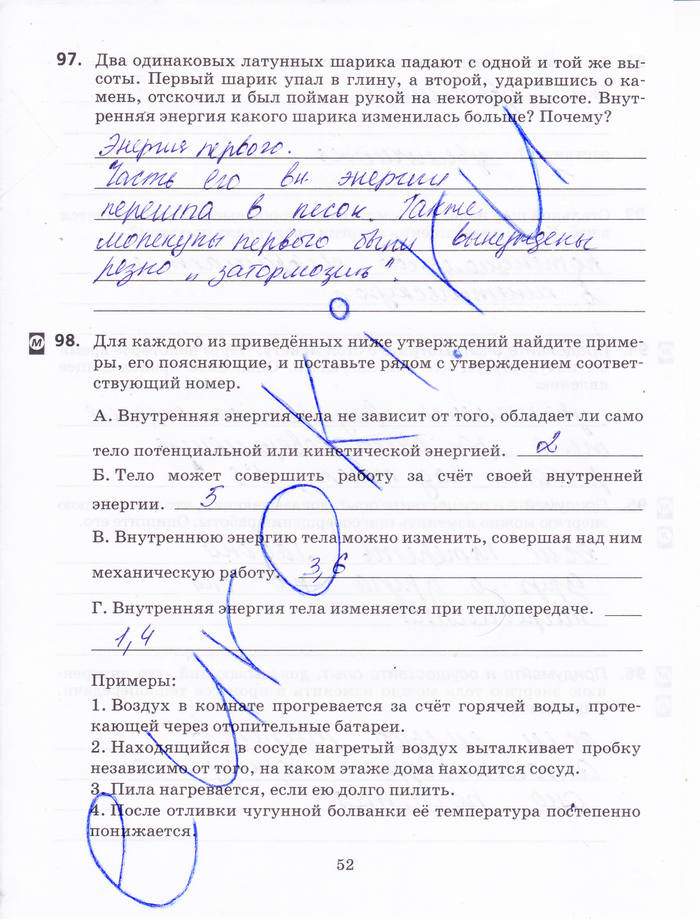 97. Два одинаковых латунных шарика падают с одной и той же вы-
соты. Первый шарик упал в глину, а второй, ударившись о ка-
мень, отскочил и был пойман рукой на некоторой высоте. Внут-
ренняя энергия какого шарика изменилась больше? Почему?
Энергия первого.
Часть его вн. энергии
перешла в песок. Также
молекулы первого были вынуждены
резко „затормозить"
М 98. Для каждого из приведённых ниже утверждений найдите приме-
ры, его поясняющие, и поставьте рядом с утверждением соответ-
ствующий номер.
А. Внутренняя энергия тела не зависит от того, обладает ли само
тело потенциальной или кинетической энергией. 2
Б. Тело может совершить работу за счёт своей внутренней
энергии. 5
В. Внутреннюю энергию тела можно изменить, совершая над ним
механическую работу. 3,6
Г. Внутренняя энергия тела изменяется при теплопередаче.
1,4
Примеры:
1. Воздух в комнате прогревается за счёт горячей воды, проте-
кающей через отопительные батареи.
2. Находящийся в сосуде нагретый воздух выталкивает пробку
независимо от того, на каком этаже дома находится сосуд.
3. Пила нагревается, если ею долго пилить.
4. После отливки чугунной болванки её температура постепенно
понижается.
52